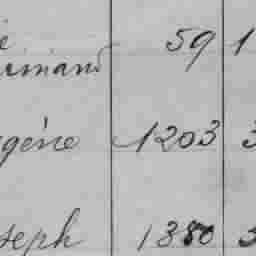 59 1
rmand
gène 1203 3
seph 1380 3